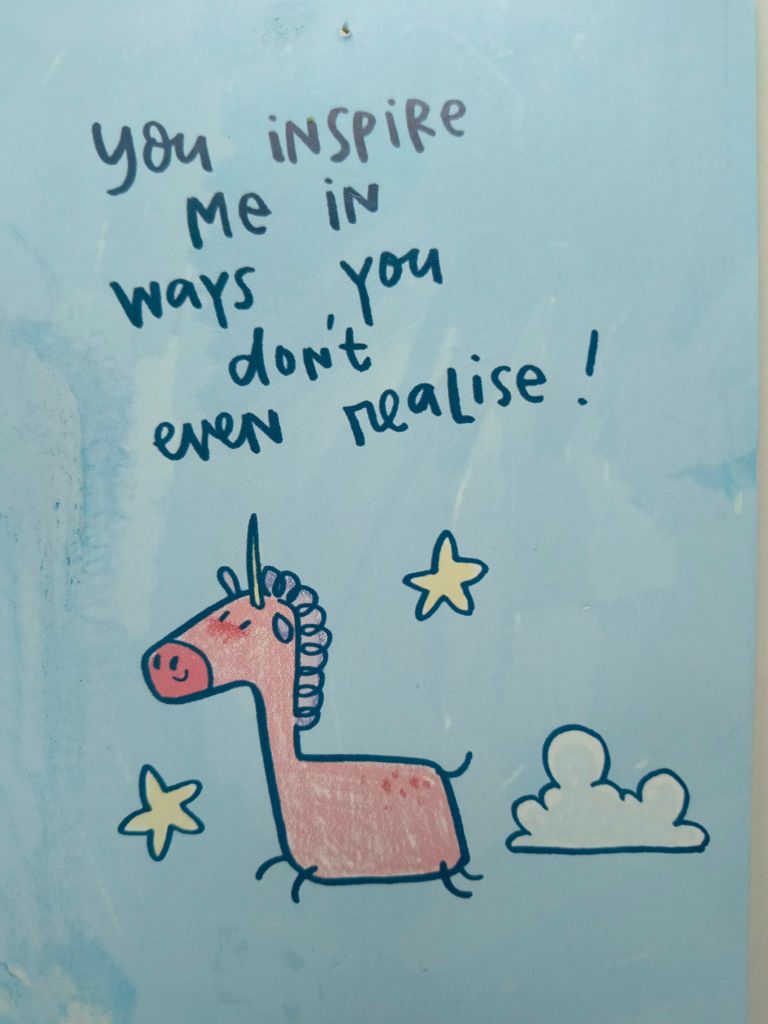 you inspire
me in
ways you
don't
even realise!